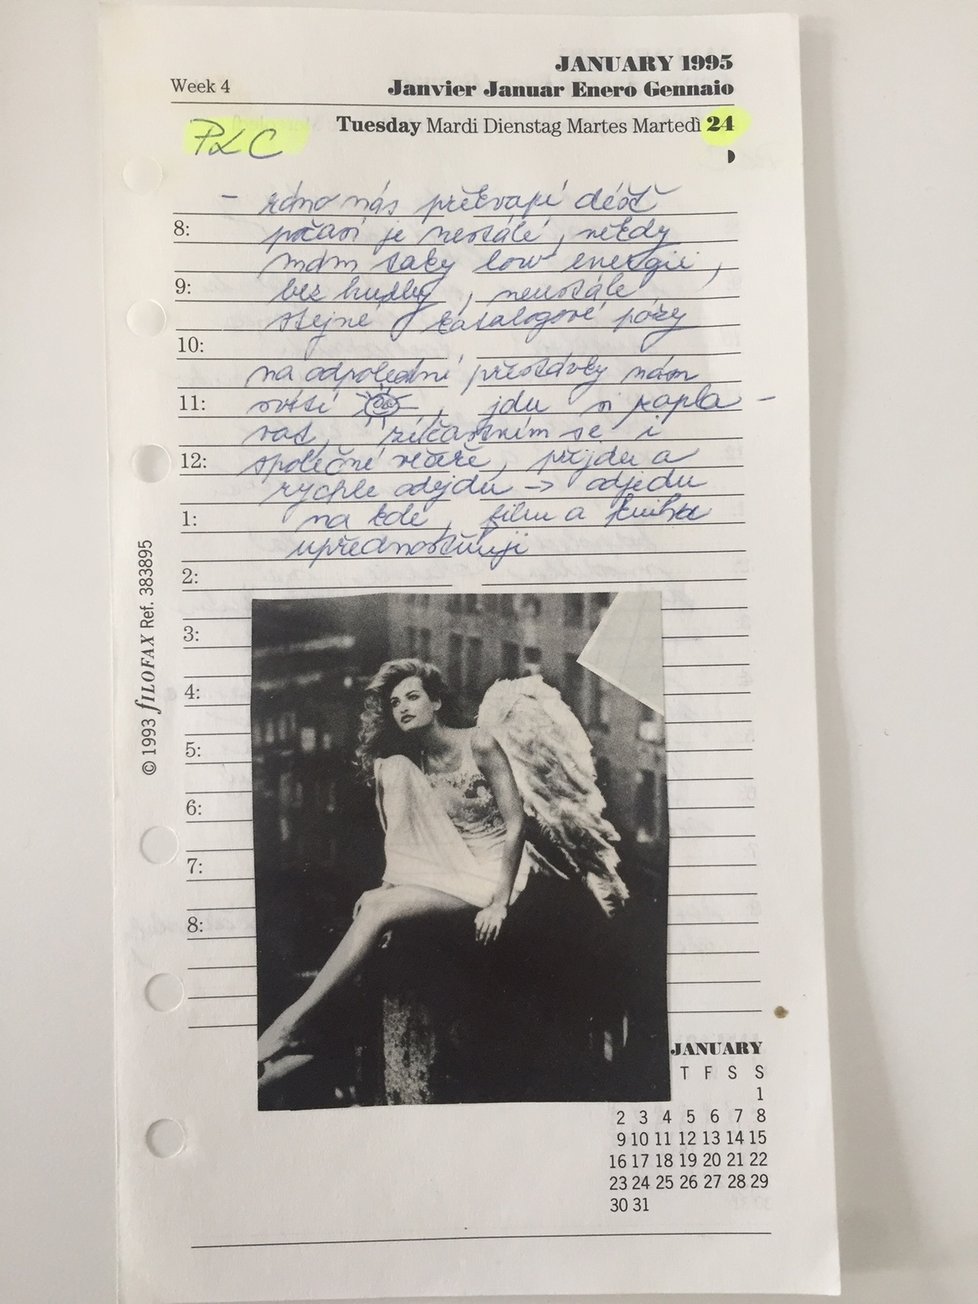 JANUARY 1995
Week 4
Janvier Januar Enero Gennaio
Tuesday Mardi Dienstag Martes Martedì 24
PLC
- ráno nás překvapí déšť
8:
počasí je nestálé, někdy
mám taky low energii,
9:
bez hudby, neustále
stejné katalogové pózy
10:
na odpolední přestávky nám
11:
svítí, jdu si zapla-
vat, zúčastním se i
12:
společné večeře, přijdu a
rychle odejdu -> odjedu
1:
na kole, film a kniha
upřednostňuji
2:
3:
4:
5:
6:
7:
8:
© 1993 fILOFAX Ref. 383895
JANUARY
T F S S
1
2 3 4 5 6 7 8
9 10 11 12 13 14 15
16 17 18 19 20 21 22
23 24 25 26 27 28 29
30 31